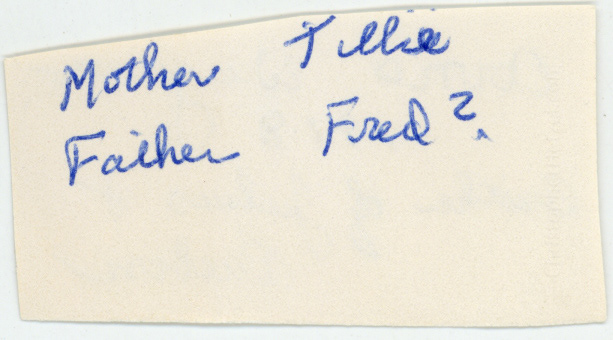 Mother Tillie
Father Fred?